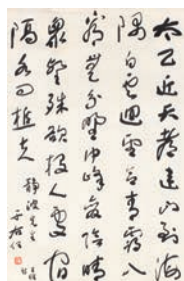 太乙近天都連山到海
隅白雲迴望合青靄入
看無分野中峰變陰晴
衆壑殊欲投人處宿
隔水問樵夫
靜波先生
于右任